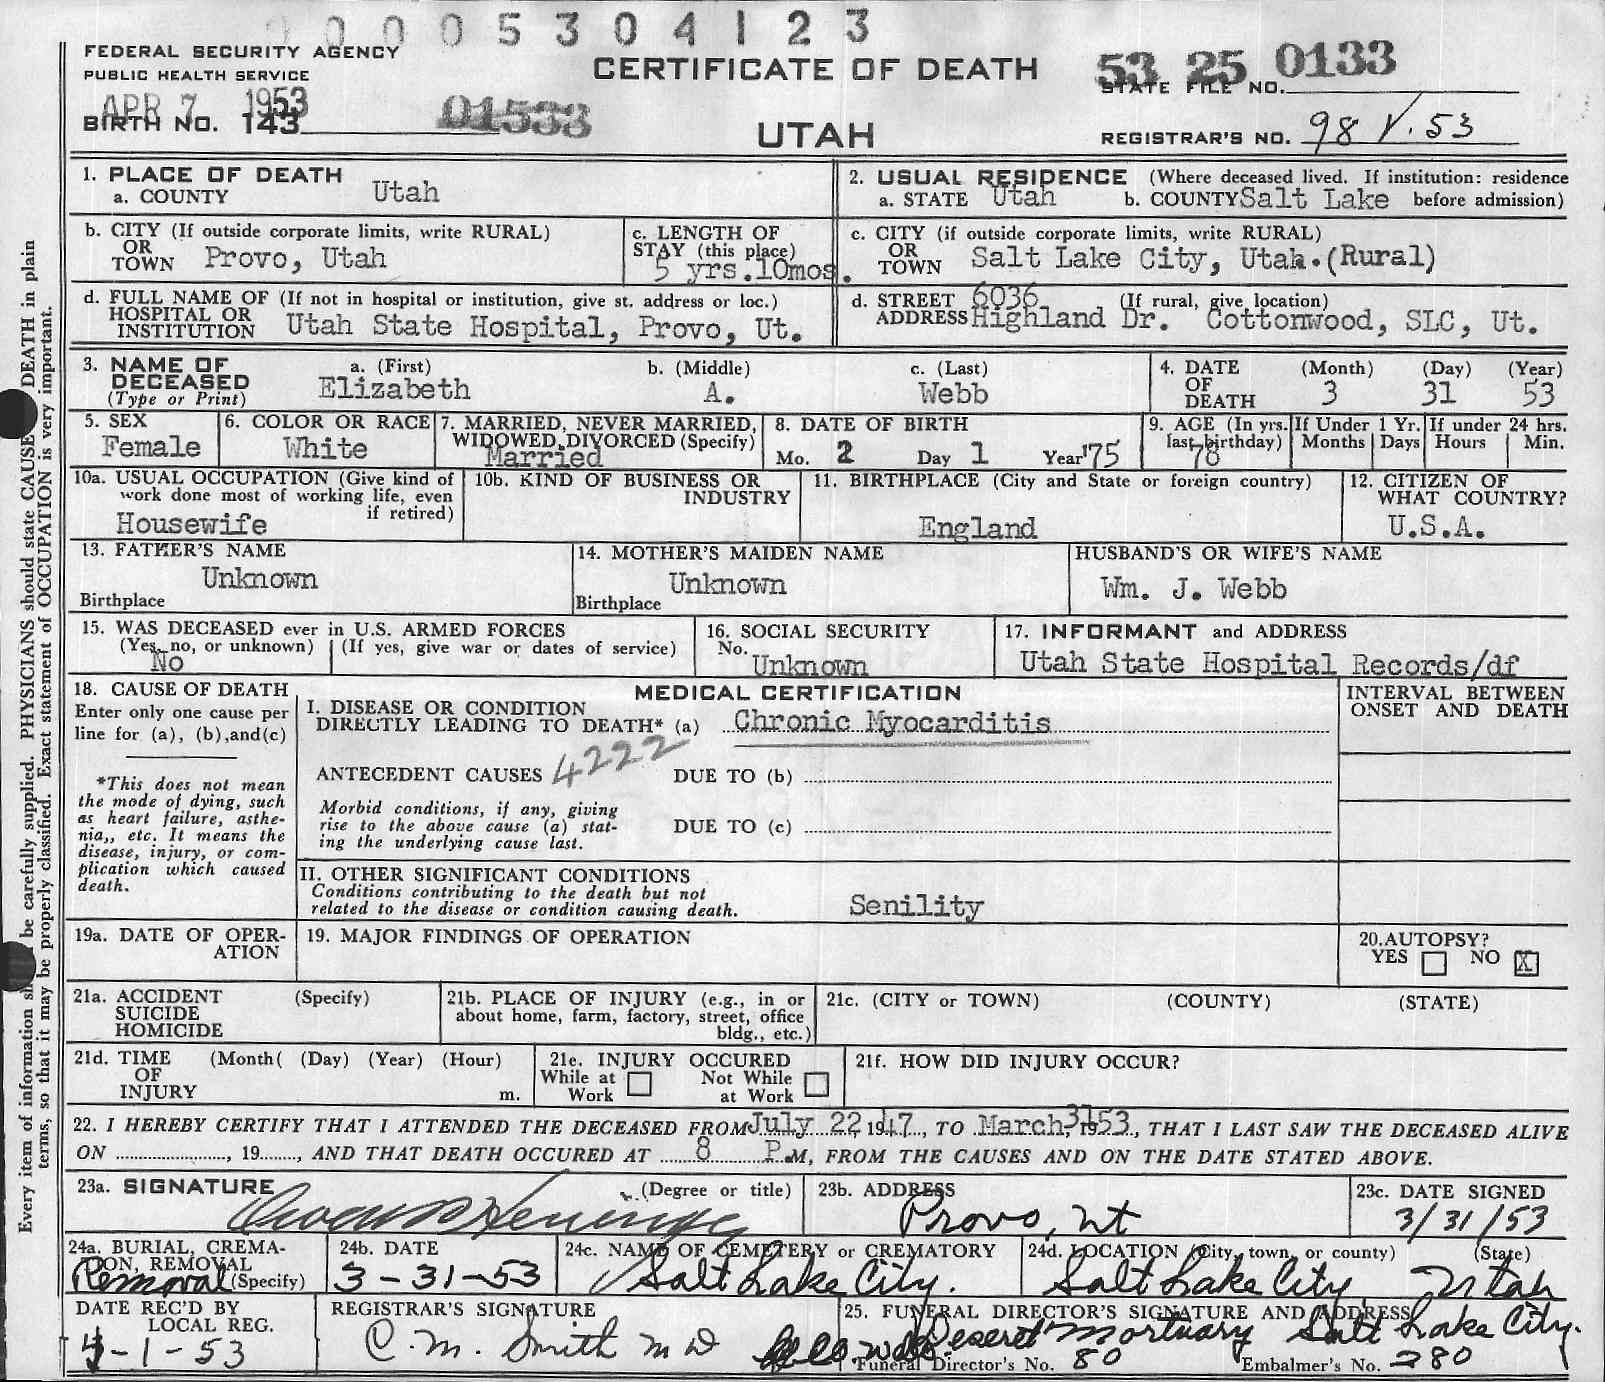 0 0 0 5 3 0 4 1 2 3
FEDERAL SECURITY AGENCY
PUBLIC HEALTH SERVICE
APR 7 1953
BIRTH NO. 143 01533
CERTIFICATE OF DEATH
UTAH
53 25 0133
STATE FILE NO.
REGISTRAR'S NO. 98 V.53
1. PLACE OF DEATH
a. COUNTY Utah
2. USUAL RESIDENCE (Where deceased lived. If institution: residence
a. STATE Utah b. COUNTY Salt Lake before admission)
b. CITY (If outside corporate limits, write RURAL)
OR
TOWN Provo, Utah
c. LENGTH OF
STAY (this place)
5 yrs.10mos.
c. CITY (if outside corporate limits, write RURAL)
OR
TOWN Salt Lake City, Utah.(Rural)
d. FULL NAME OF (If not in hospital or institution, give st. address or loc.)
HOSPITAL OR
INSTITUTION Utah State Hospital, Provo, Ut.
d. STREET 6036 (If rural, give location)
ADDRESS Highland Dr. Cottonwood, SLC, Ut.
3. NAME OF
DECEASED
(Type or Print)
a. (First) b. (Middle) c. (Last)
Elizabeth A. Webb
4. DATE
OF
DEATH
(Month) (Day) (Year)
3 31 53
5. SEX
Female
6. COLOR OR RACE
White
7. MARRIED, NEVER MARRIED,
WIDOWED, DIVORCED (Specify)
Married
8. DATE OF BIRTH
Mo. 2 Day 1 Year '75
9. AGE (In yrs.
last birthday)
78
If Under 1 Yr.
Months Days
If under 24 hrs.
Hours Min.
10a. USUAL OCCUPATION (Give kind of
work done most of working life, even
if retired)
Housewife
10b. KIND OF BUSINESS OR
INDUSTRY
11. BIRTHPLACE (City and State or foreign country)
England
12. CITIZEN OF
WHAT COUNTRY?
U.S.A.
13. FATHER'S NAME
Unknown
Birthplace
14. MOTHER'S MAIDEN NAME
Unknown
Birthplace
HUSBAND'S OR WIFE'S NAME
Wm. J. Webb
15. WAS DECEASED ever in U.S. ARMED FORCES
(Yes, no, or unknown) (If yes, give war or dates of service)
No
16. SOCIAL SECURITY
No. Unknown
17. INFORMANT and ADDRESS
Utah State Hospital Records/df
18. CAUSE OF DEATH
Enter only one cause per
line for (a), (b),and(c)
*This does not mean
the mode of dying, such
as heart failure, asthe-
nia,, etc. It means the
disease, injury, or com-
plication which caused
death.
MEDICAL CERTIFICATION
I. DISEASE OR CONDITION
DIRECTLY LEADING TO DEATH* (a) Chronic Myocarditis
4222
ANTECEDENT CAUSES DUE TO (b)
Morbid conditions, if any, giving
rise to the above cause (a) stat-
ing the underlying cause last.
DUE TO (c)
INTERVAL BETWEEN
ONSET AND DEATH
II. OTHER SIGNIFICANT CONDITIONS
Conditions contributing to the death but not
related to the disease or condition causing death.
Senility
19a. DATE OF OPER-
ATION
19. MAJOR FINDINGS OF OPERATION
20.AUTOPSY?
YES NO X
21a. ACCIDENT (Specify)
SUICIDE
HOMICIDE
21b. PLACE OF INJURY (e.g., in or
about home, farm, factory, street, office
bldg., etc.)
21c. (CITY or TOWN) (COUNTY) (STATE)
21d. TIME (Month( (Day) (Year) (Hour)
OF
INJURY m.
21e. INJURY OCCURED
While at Work Not While at Work
21f. HOW DID INJURY OCCUR?
22. I HEREBY CERTIFY THAT I ATTENDED THE DECEASED FROM July 22, 1947, TO March 31, 1953, THAT I LAST SAW THE DECEASED ALIVE
ON , 19 , AND THAT DEATH OCCURED AT 8 P.M, FROM THE CAUSES AND ON THE DATE STATED ABOVE.
23a. SIGNATURE (Degree or title)
23b. ADDRESS
Provo, Ut
23c. DATE SIGNED
3/31/53
24a. BURIAL, CREMA-
TION, REMOVAL
Removal (Specify)
24b. DATE
3-31-53
24c. NAME OF CEMETERY or CREMATORY
Salt Lake City.
24d. LOCATION (City, town, or county) (State)
Salt Lake City Utah
DATE REC'D BY
LOCAL REG.
4-1-53
REGISTRAR'S SIGNATURE
C. M. Smith M D
25. FUNERAL DIRECTOR'S SIGNATURE AND ADDRESS
Deseret Mortuary Salt Lake City.
Funeral Director's No. 80 Embalmer's No. 280
Every item of information be carefully supplied. PHYSICIANS should state CAUSE DEATH in plain
terms, so that it may be properly classified. Exact statement of OCCUPATION is very important.